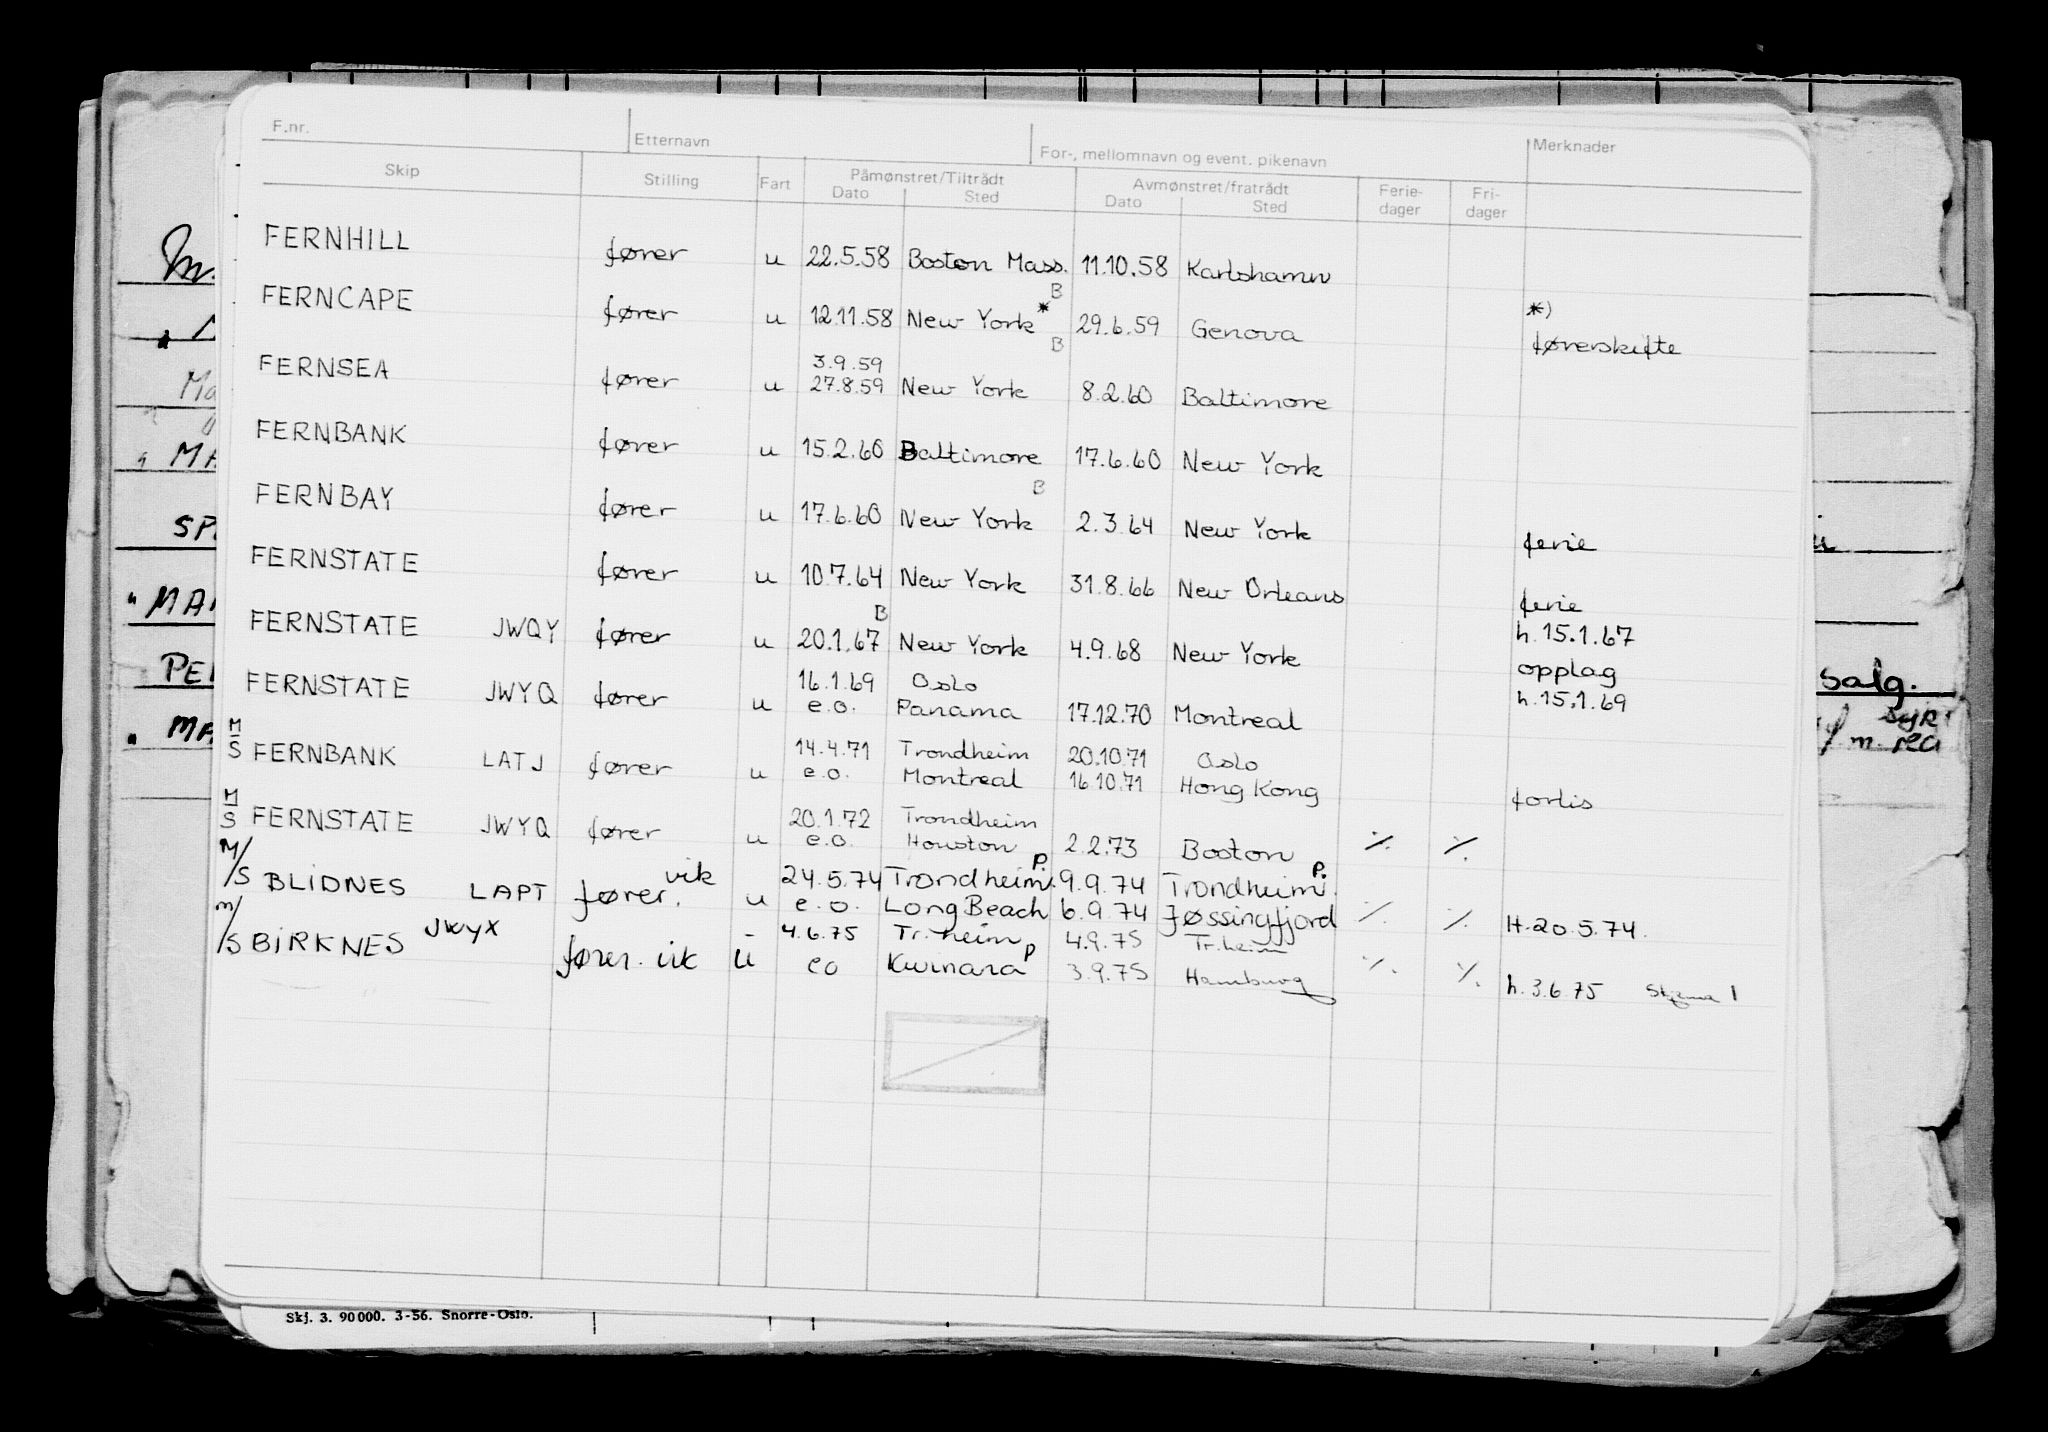 F.nr. Etternavn For-, mellomnavn og event. pikenavn Merknader
Skip Stilling Fart Påmønstret/Tiltrådt Avmønstret/fratrådt Ferie- Fri-
Dato Sted Dato Sted dager dager
FERNHILL fører u 22.5.58 Boston Mass. 11.10.58 Karlshamn
B
FERNCAPE fører u 12.11.58 New York * 29.6.59 Genova *) førerskifte
B
3.9.59
FERNSEA fører u 27.8.59 New York 8.2.60 Baltimore
FERNBANK fører u 15.2.60 Baltimore 17.6.60 New York
B
FERNBAY fører u 17.6.60 New York 2.3.64 New York ferie
FERNSTATE fører u 10.7.64 New York 31.8.66 New Orleans ferie
B h.15.1.67
FERNSTATE JWQY fører u 20.1.67 New York 4.9.68 New York opplag
16.1.69 Oslo
FERNSTATE JWYQ fører u e.o. Panama 17.12.70 Montreal h.15.1.69
14.4.71 Trondheim 20.10.71 Oslo
M/S FERNBANK LATJ fører u e.o. Montreal 16.10.71 Hong Kong forlis
20.1.72 Trondheim
M/S FERNSTATE JWYQ fører u e.o. Houston 2.2.73 Boston ./. ./.
24.5.74 Trondheim P. 9.9.74 Trondheim P.
M/S BLIDNES LAPT fører. vik u e.o. Long Beach 6.9.74 Jøssingfjord ./. ./. H.20.5.74.
4.6.75 Tr.heim 4.9.75 Tr.heim
M/S BIRKNES JWYX fører. vik u eo Kwinana P 3.9.75 Hamburg ./. ./. h.3.6.75
M.
MA
SPA
"MAR
PE
MA
salg.
Skj. 3. 90000. 3-56. Snorre-Oslo.